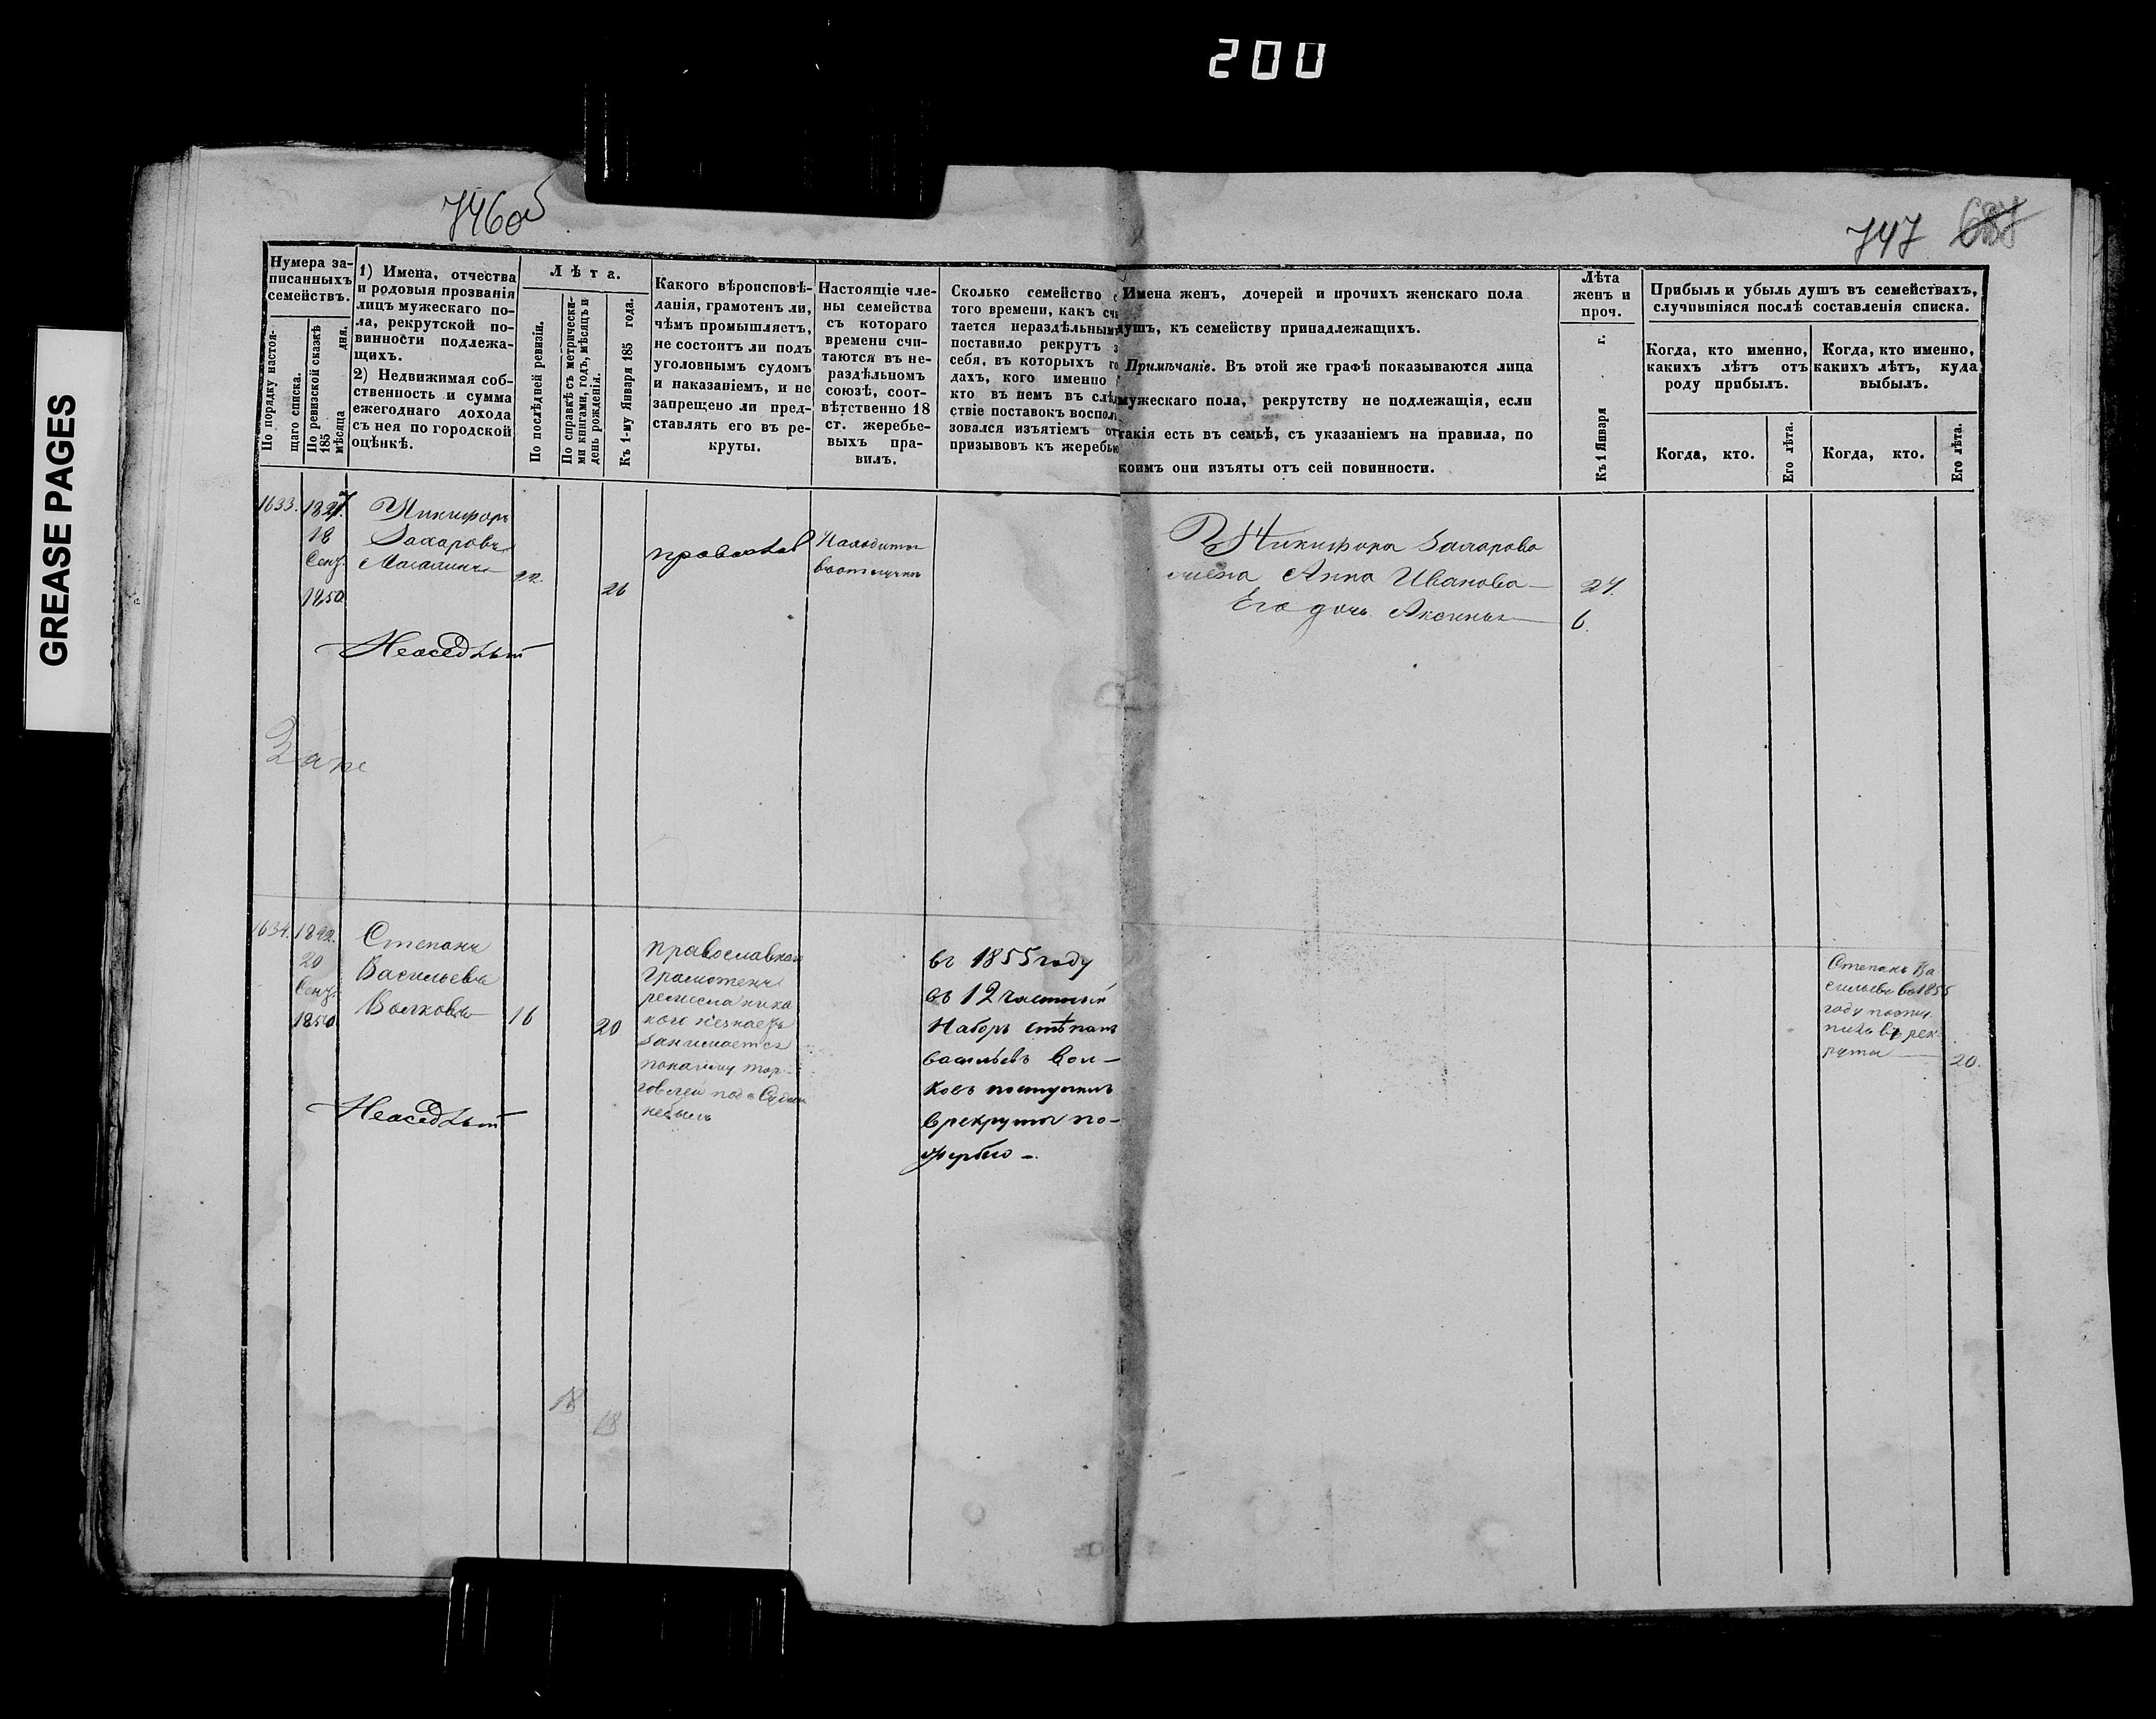 200
GREASE PAGES
746об
747 687
Нумера за-
писанныхъ
семействъ.
По порядку настоя-
щаго списка.
По ревизской сказкѣ
185 мѣсяца дня.
1) Имена, отчества
и родовыя прозванія
лицъ мужескаго по-
ла, рекрутской по-
винности подлежа-
щихъ.
2) Недвижимая соб-
ственность и сумма
ежегоднаго дохода
съ нея по городской
оцѣнкѣ.
Лѣта.
По послѣдней ревизіи.
По справкѣ съ метрически-
ми книгами, годъ, мѣсяцъ и
день рожденія.
Къ 1-му Января 185 года.
Какого вѣроисповѣ-
данія, грамотенъ ли,
чѣмъ промышляетъ,
не состоитъ ли подъ
уголовнымъ судомъ
и наказаніемъ, и не
запрещено ли пред-
ставлять его въ ре-
круты.
Настоящіе чле-
ны семейства
съ котораго
времени счи-
таются въ не-
раздѣльномъ
союзѣ, соот-
вѣтственно 18
ст. жеребье-
выхъ пра-
вилъ.
Сколько семейство с
того времени, какъ счи
тается нераздѣльнымъ
поставило рекрутъ з
себя, въ которыхъ го
дахъ, кого именно
кто въ немъ въ слѣд
ствіе поставокъ воспол
зовался изъятіемъ отъ
призывовъ къ жеребью
Имена женъ, дочерей и прочихъ женскаго пола
душъ, къ семейству принадлежащихъ.
Примѣчаніе. Въ этой же графѣ показываются лица
мужескаго пола, рекрутству не подлежащія, если
такія есть въ семьѣ, съ указаніемъ на правила, по
коимъ они изъяты отъ сей повинности.
Лѣта
женъ и
проч.
Къ 1 Января г.
Прибыль и убыль душъ въ семействахъ,
случившіяся послѣ составленія списка.
Когда, кто именно,
какихъ лѣтъ отъ
роду прибылъ.
Когда, кто именно,
какихъ лѣтъ, куда
выбылъ.
Когда, кто.
Его лѣта.
Когда, кто.
Его лѣта.
1633.
18
Сент.
1850
Никифоръ
Захаровъ
22.
26
православ
Находится
въ отлучкѣ
Неоседлый
Никифора Захарова
жена Анна Иванова 24.
Его дочь Аксинья 6.
Запе
1634. 1842.
20
Сент.
1850
Степанъ
Васильевъ
Волковъ 16
20
Православнаго
Грамотенъ
ремесла ника
кого незнаетъ
Занимается
тор-
говлей под Судом
небылъ
Неоседлый
въ 1855 году
въ 12 частный
Наборъ Степанъ
васильевъ Вол-
ковъ поступилъ
в рекруты по-
жеребью
Степанъ Ва
сильевъ въ 1855
году посту
пилъ въ рек
руты 20.
18
18